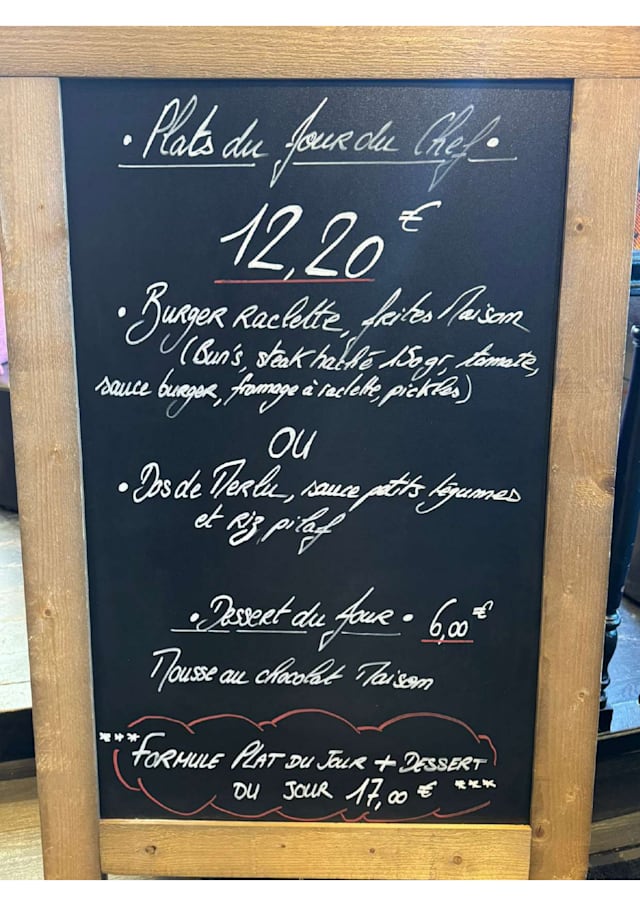 • Plats du Jour du Chef •
12,20 €
• Burger raclette, frites Maison
(Bun's, steak haché 150gr, tomate,
sauce burger, fromage à raclette, pickles)
OU
• Dos de Merlu, sauce petits légumes
et riz pilaf
• Dessert du Jour • 6,00 €
Mousse au chocolat Maison
*** FORMULE PLAT DU JOUR + DESSERT
DU JOUR 17,00 € ***